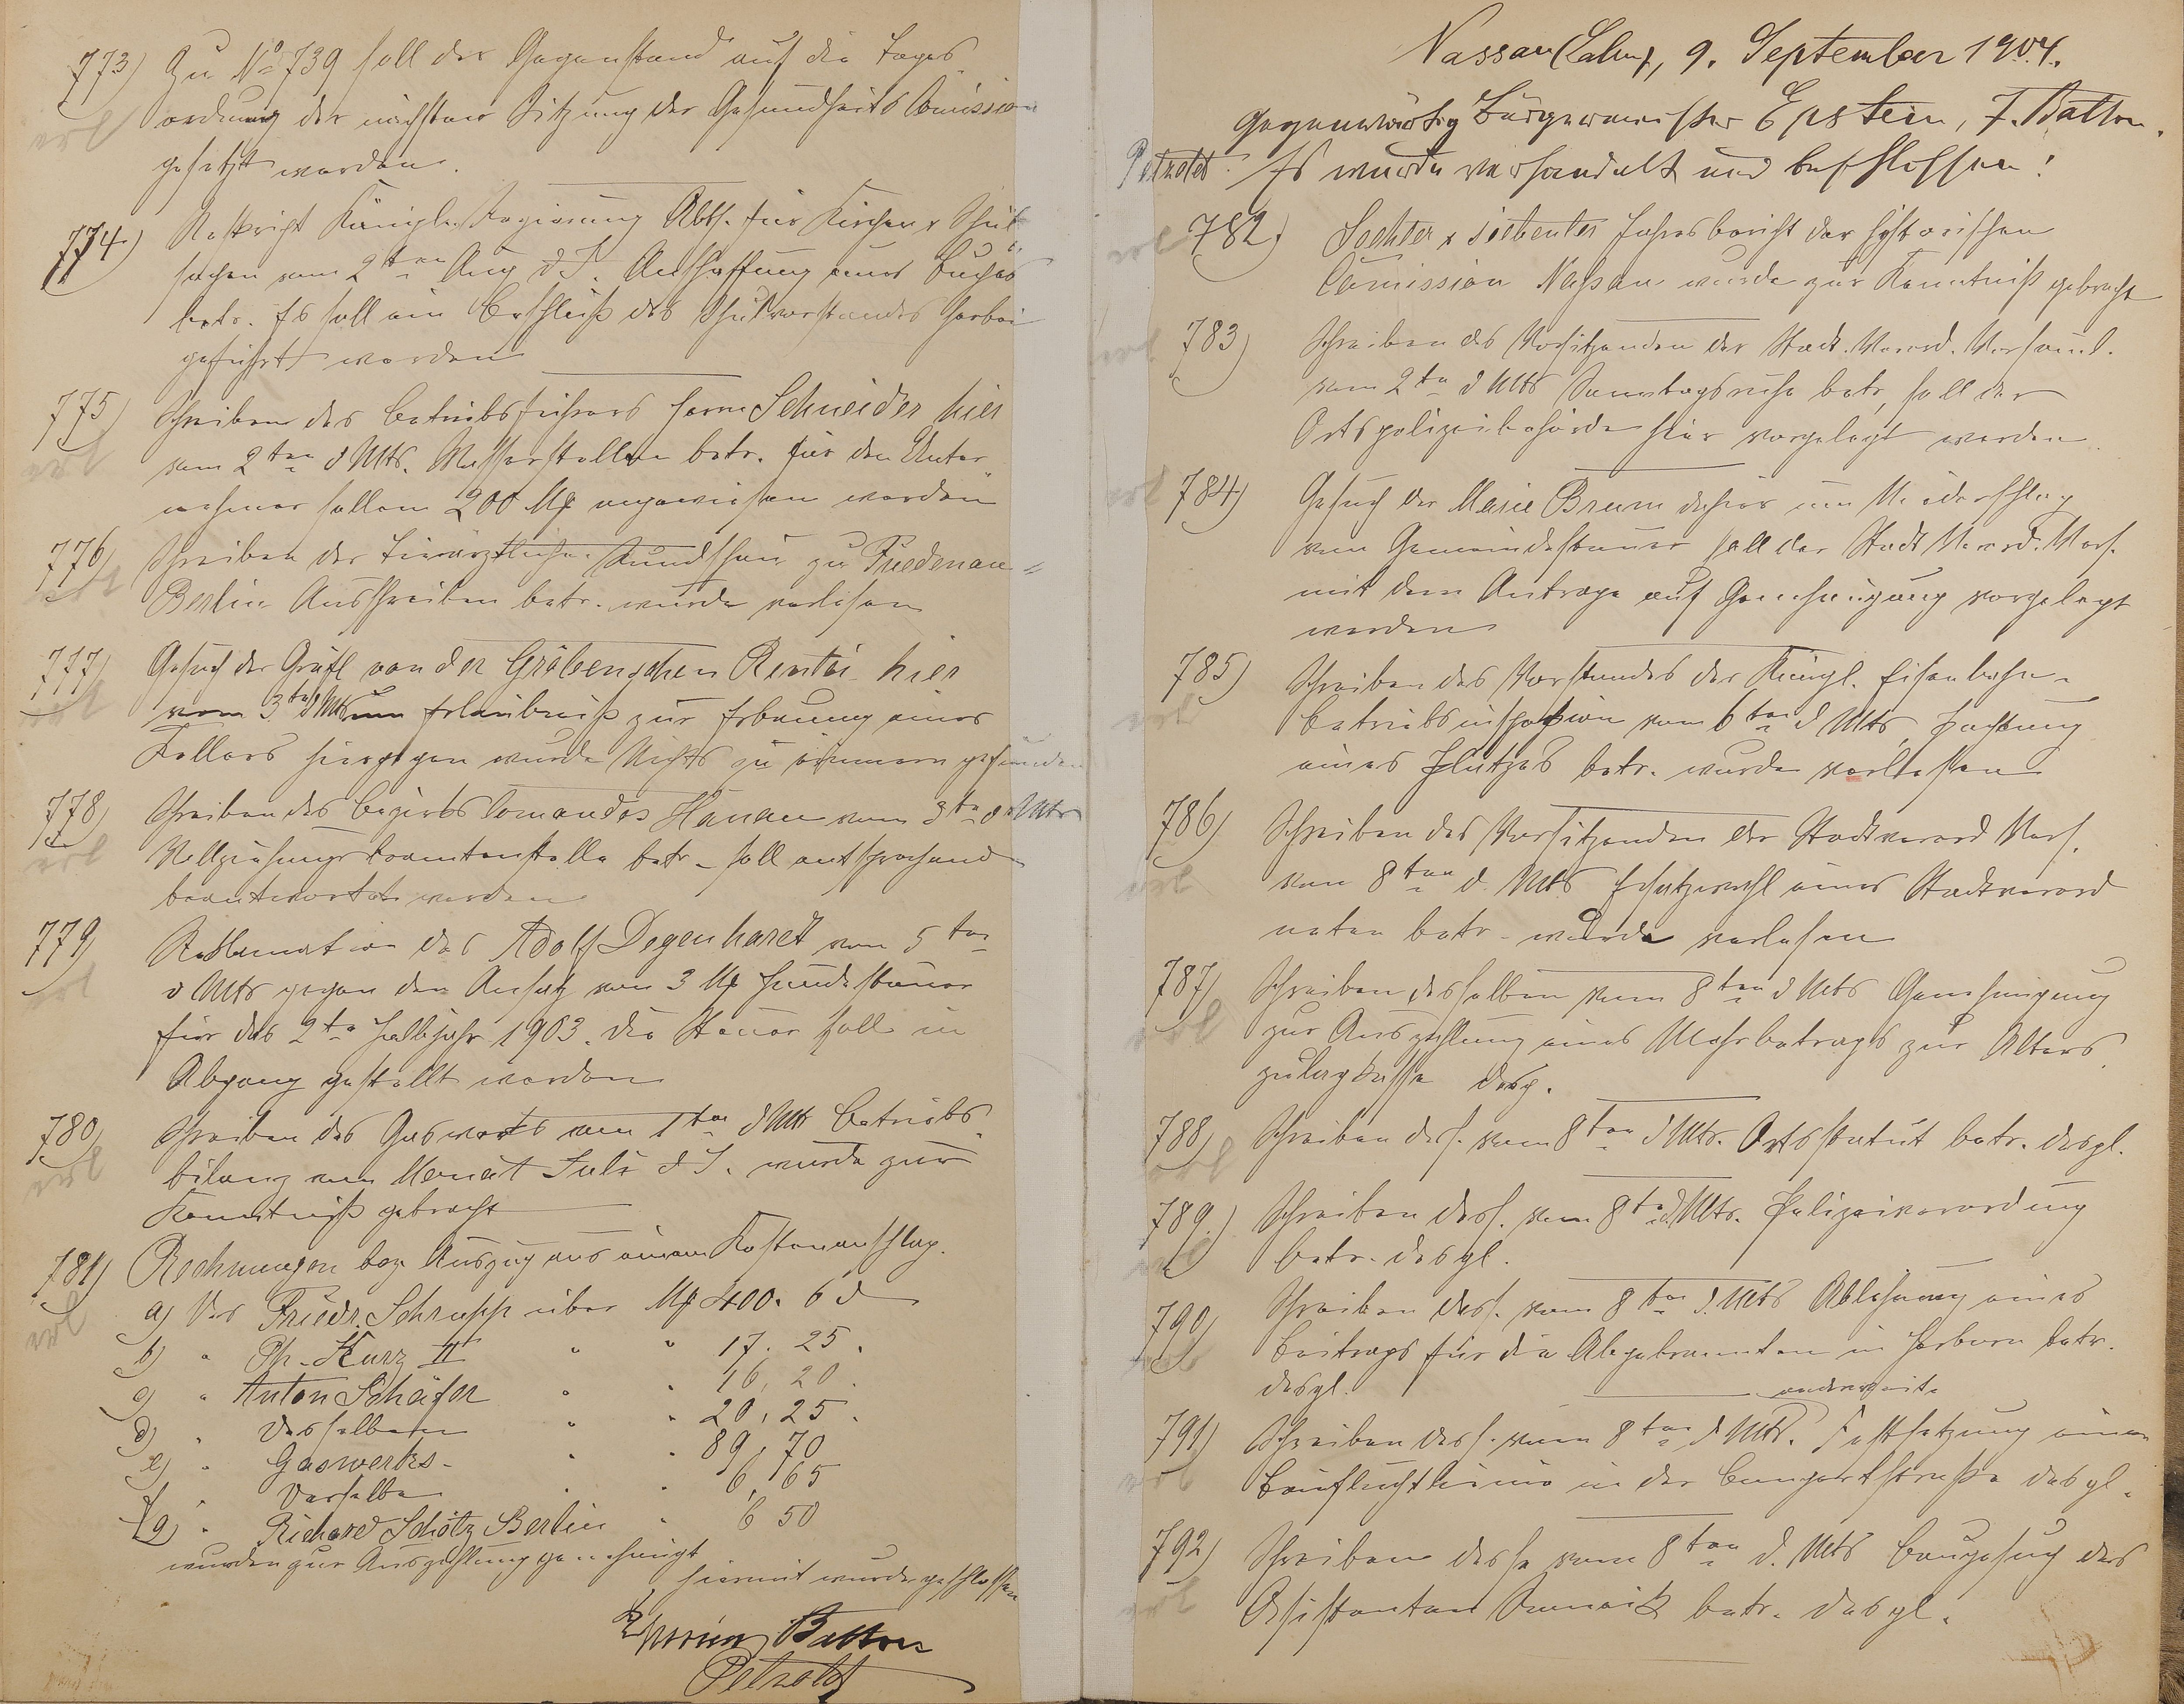 773) Zu No 739 soll der Gegenstand auf die Tages
erl ordnung der nächsten Sitzung der Gesundheits Comission
gesetzt werden.
774) Reskript Königl. Regierung Abth. für Kirchen & Schul
sachen vom 2ten Aug d J. Anschaffung eines Buches
betr. Es soll ein Beschluß des Schulvorstandes herbei
geführt werden
775) Schreiben des Betriebsführers Herrn Schneider hier
erl vom 2ten d Mts. betr. für den Unter
nehmer sollen 200 Mk angewiesen werden
776) Schreiben der Tierärztlichen Rundschau zu Friedenau=
erl Berlin Ausschreiben betr. wurde verlesen
777) Gesuch der Gräfl von der Gröben'schen Rentei hier
erl vom 3ten d Mts um Erlaubniß zur Erbauung eines
Kellers hiergegen wurde Nichts zu erinnern gefunden
778) Schreiben des Bezirks Comandos Hanau vom 3ten d Mts
erl Vollziehungsbeamtenstelle betr. soll entsprechend
beantwortet werden
779) Reklamation des Adolf Degenhardt vom 5ten
erl d Mts gegen den Ansatz von 3 Mk Hundesteuer
für das 2te Halbjahr 1903. die Steuer soll in
Abgang gestellt werden
780) Schreiben des Gaswerks vom 1ten d Mts Betriebs
erl bilanz vom Monat Juli d J. wurde zur
Kenntniß gebracht
781) Rechnungen bez. Auszug aus einem Kostenanschlag.
erl a) Des Friedr. Schrupp über Mk 400. 6
b) " Ph. Kurz II " " 17. 25.
c) " Anton Schäfer " " 16, 20.
d) " desselben " " 20, 25.
e) " Gaswerks " " 89, 70
f) " desselben " " 6, 65
g) " Richard Schötz Berlin " 6 50
wurden zur Auszahlung genehmigt
hiermit wurde geschlossen
Epstein Batton
Petzoldt
Nassau (Lahn), 9. September 1904.
Gegenwärtig Bürgermeister Epstein, F. Batton.
Petzoldt. Es wurde verhandelt und beschlossen:
erl 782) Sechster & siebenter Jahresbericht der historischen
Comission Nassau wurde zur Kenntniß gebracht
783) Schreiben des Vorsitzenden der Stadt. Verord. Versaml.
erl vom 2ten d Mts Sonntagsruhe betr, soll der
Ortspolizeibehörde hier vorgelegt werden.
erl 784) Gesuch der Marie Brum dahier um Niederschlag
von Gemeindesteuer soll der Stadt Verord. Vers.
mit dem Antrage auf Genehmigung vorgelegt
werden
785) Schreiben des Vorstandes der Königl. Eisenbahn-
erl betriebsinspektion vom 6ten d Mts Pachtung
eines Platzes betr. wurde verlesen
786) Schreiben des Vorsitzenden der Stadtverord Vers.
erl vom 8ten d. Mts Ersatzwahl eines Stadtverord
neten betr. wurde verlesen
787) Schreiben desselben vom 8ten d Mts Genehmigung
erl zur Auszahlung eines Mehrbetrags zur Alters
zulagkasse desg.
788) Schreiben dess. vom 8ten d Mts. Ortsstatut betr. desgl.
erl
789.) Schreiben dess. vom 8ten d Mts. Polizeiverordnung
erl betr. desgl.
790) Schreiben dess. vom 8ten d. Mts Ablehnung eines
erl Beitrags für die Abgebrannten in Herborn betr.
desgl. anderweite
791) Schreiben dess. vom 8ten d Mts. Festsetzung einer
erl Baufluchtlinie in der Bongertstraße desgl.
792) Schreiben dess. vom 8ten d. Mts Baugesuch des
erl Assistenten betr. desgl.